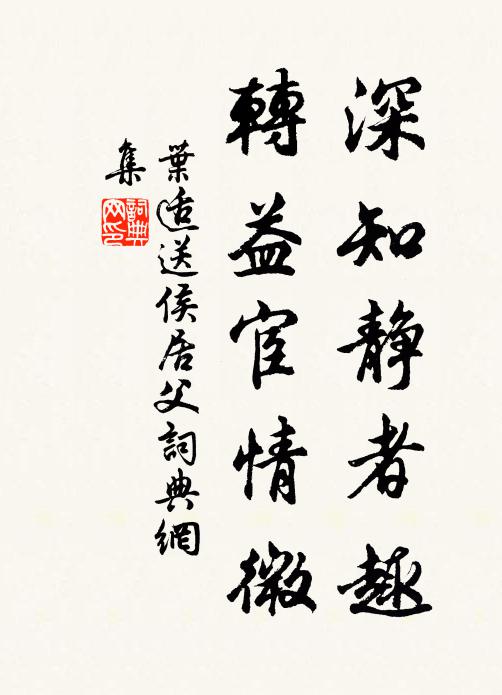 深知靜者趣
轉益宦情微
葉適送侯居父詞典網
集
詞典
网印